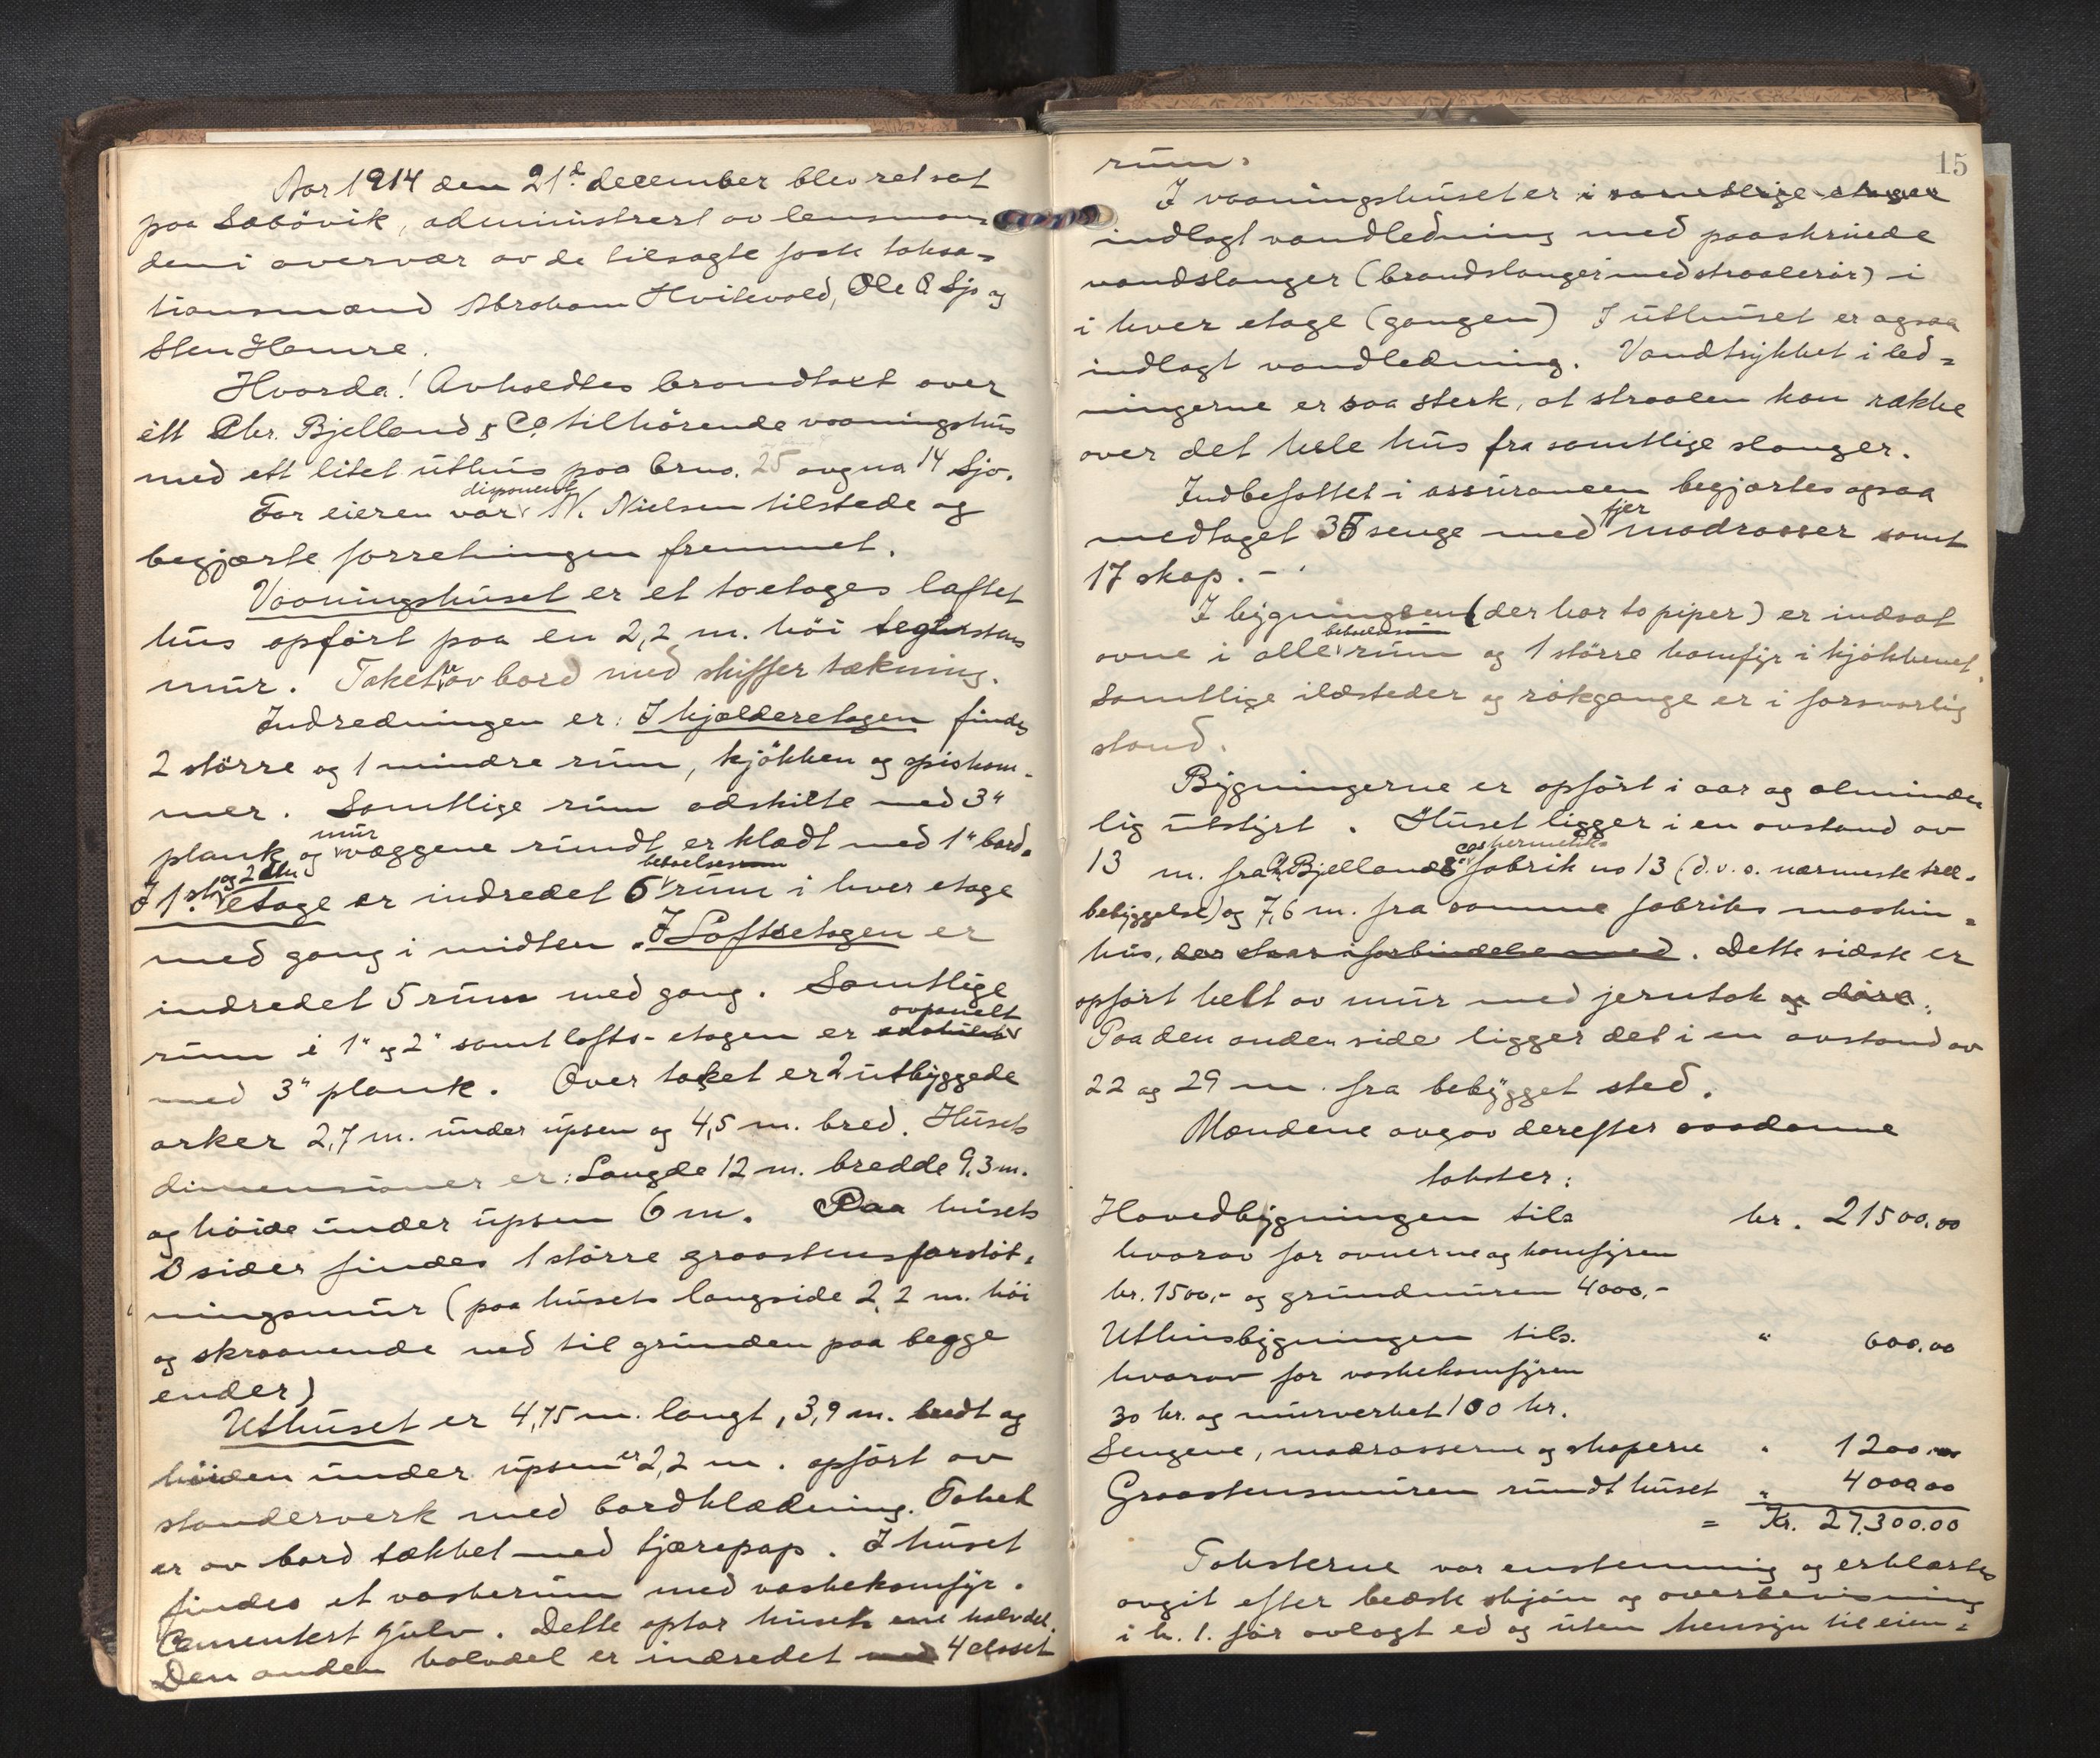 Aar 1914 den 21de december blev ret sat
paa Sæbövik, administrert av lensman-
den i overvær av de tilsagte faste taksa-
tionsmænd Abraham Hvitevold, Ole O Sjo og
Sten Hamre.
Hvorda! Avholdtes brandtaxt over
ett Chr. Bjelland & Co. tilhörende vaaningshus
med ett litet uthus paa brno. 25 av gno 14 Sjo.
For eieren var disponent N. Nielsen tilstede og
begjærte forretningen fremmet.
Vaaningshuset er et toetages laftet
hus opfört paa en 2,2 m. höi
mur. Taket er av bord med skiffer tækning.
Indredningen er: I kjælderetagen findes
2 större og 1 mindre rum, kjökken og spiskam-
mer. Samtlige rum adskilte med 3"
plank og mur væggene rundt er klædt med 1" bord.
I 1ste og 2den etage er indredet 6 beboelsesrum i hver etage
med gang i midten. I Loftsetagen er
indredet 5 rum med gang. Samtlige
rum i 1" og 2" samt lofts-etagen er avpanelt
med 3" plank. Over taket er 2 utbyggede
arker 2,7 m. under upsen og 4,5 m. bred. Husets
dimensioner er: Længde 12 m. bredde 9,3 m.
og höide under upsen 6 m. Paa husets
3 sider findes 1 större graastensforstöt-
ningsmur (paa husets langside 2,2 m. höi
og skraanende ned til grunden paa begge
ender)
Uthuset er 4,75 m. langt, 3,9 m. bredt og
höiden under upsen er 2,2 m. opfört av
standerverk med bordklædning. Taket
er av bord tækket med tjærepap. I huset
findes et vaskerum med vaskekomfyr.
Cementert gulv. Dette optar husets ene halvdel.
Den anden halvdel er indredet med 4 closet
15
rum.
I vaaningshuset er i samtlige etager
indlagt vandledning med paaskruede
vandslanger (brandslanger med straalerör) i
i hver etage (gangen) I uthuset er ogsaa
indlagt vandledning. Vandtrykket i led-
ningerne er saa sterk, at straalen kan række
over det hele hus fra samtlige slanger.
Indbefattet i assurancen begjærtes ogsaa
medtaget 35 senge med fjer madrasser samt
17 skap. -
I bygningen (der har to piper) er indsat
ovne i alle beboelses rum og 1 större komfyr i kjökkenet.
Samtlige ildsteder og rökgange er i forsvarlig
stand.
Bygningerne er opfört i aar og alminde-
lig utstyrt. Huset ligger i en avstand av
13 m. fra C. Bjelland & Cos hermetik- fabrik no 13 (d.v.s. nærmeste træ-
bebyggelse) og 7,6 m. fra samme fabriks maskin-
hus, der staar i forbindelse med. Dette sidste er
opfört helt av mur med jerntak og döre.
Paa den anden side ligger det i en avstand av
22 og 29 m. fra bebygget sted.
Mændene avgav derefter saadanne
takster:
Hovedbygningen tils kr. 21500.00
hvorav for ovnerne og komfyren
kr. 1500,- og grundmuren 4000,-
Uthusbygningen tils. " 600.00
hvorav for vaskekomfyren
30 kr. og murverket 100 kr.
Sengene, madrasserne og skapene " 1200.00
Graastensmuren rundt huset " 4000.00
= Kr. 27.300.00
Taksterne var enstemmig og erklærtes
avgit efter bedste skjön og overbevisning
i h. t. för avlagt ed og uten hensyn til eien-